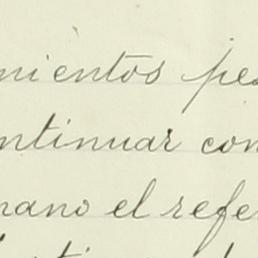 mientos pe
ntinuar con
mano el refe